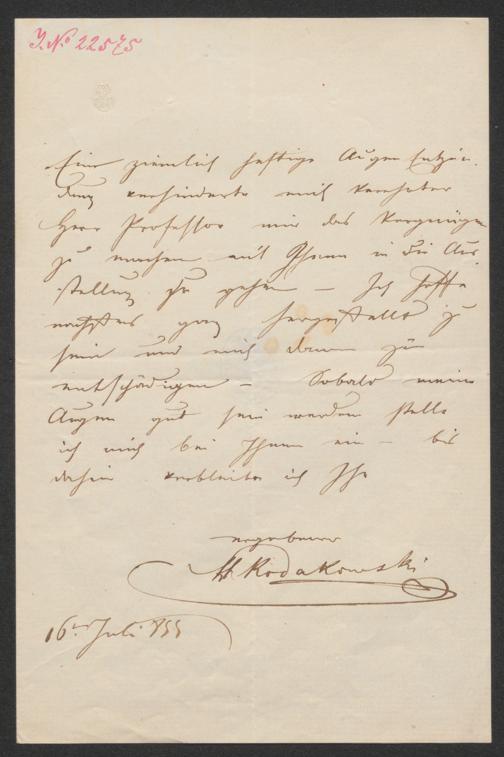 I.N. 22575
Eine ziemlich heftige Augen Entzün-
dung verhinderte mich verehrter
Herr Professor mir das Vergnügen
zu machen mit Ihnen in die Aus-
stellung zu gehen — Ich hoffe
nächstens ganz hergestellt zu
sein und mich dann zu
entschädigen — Sobald meine
Augen gut sein werden stelle
ich mich bei Ihnen ein — bis
dahin verbleibe ich Ihr
ergebener
H Rodakowski
16ten Juli 855